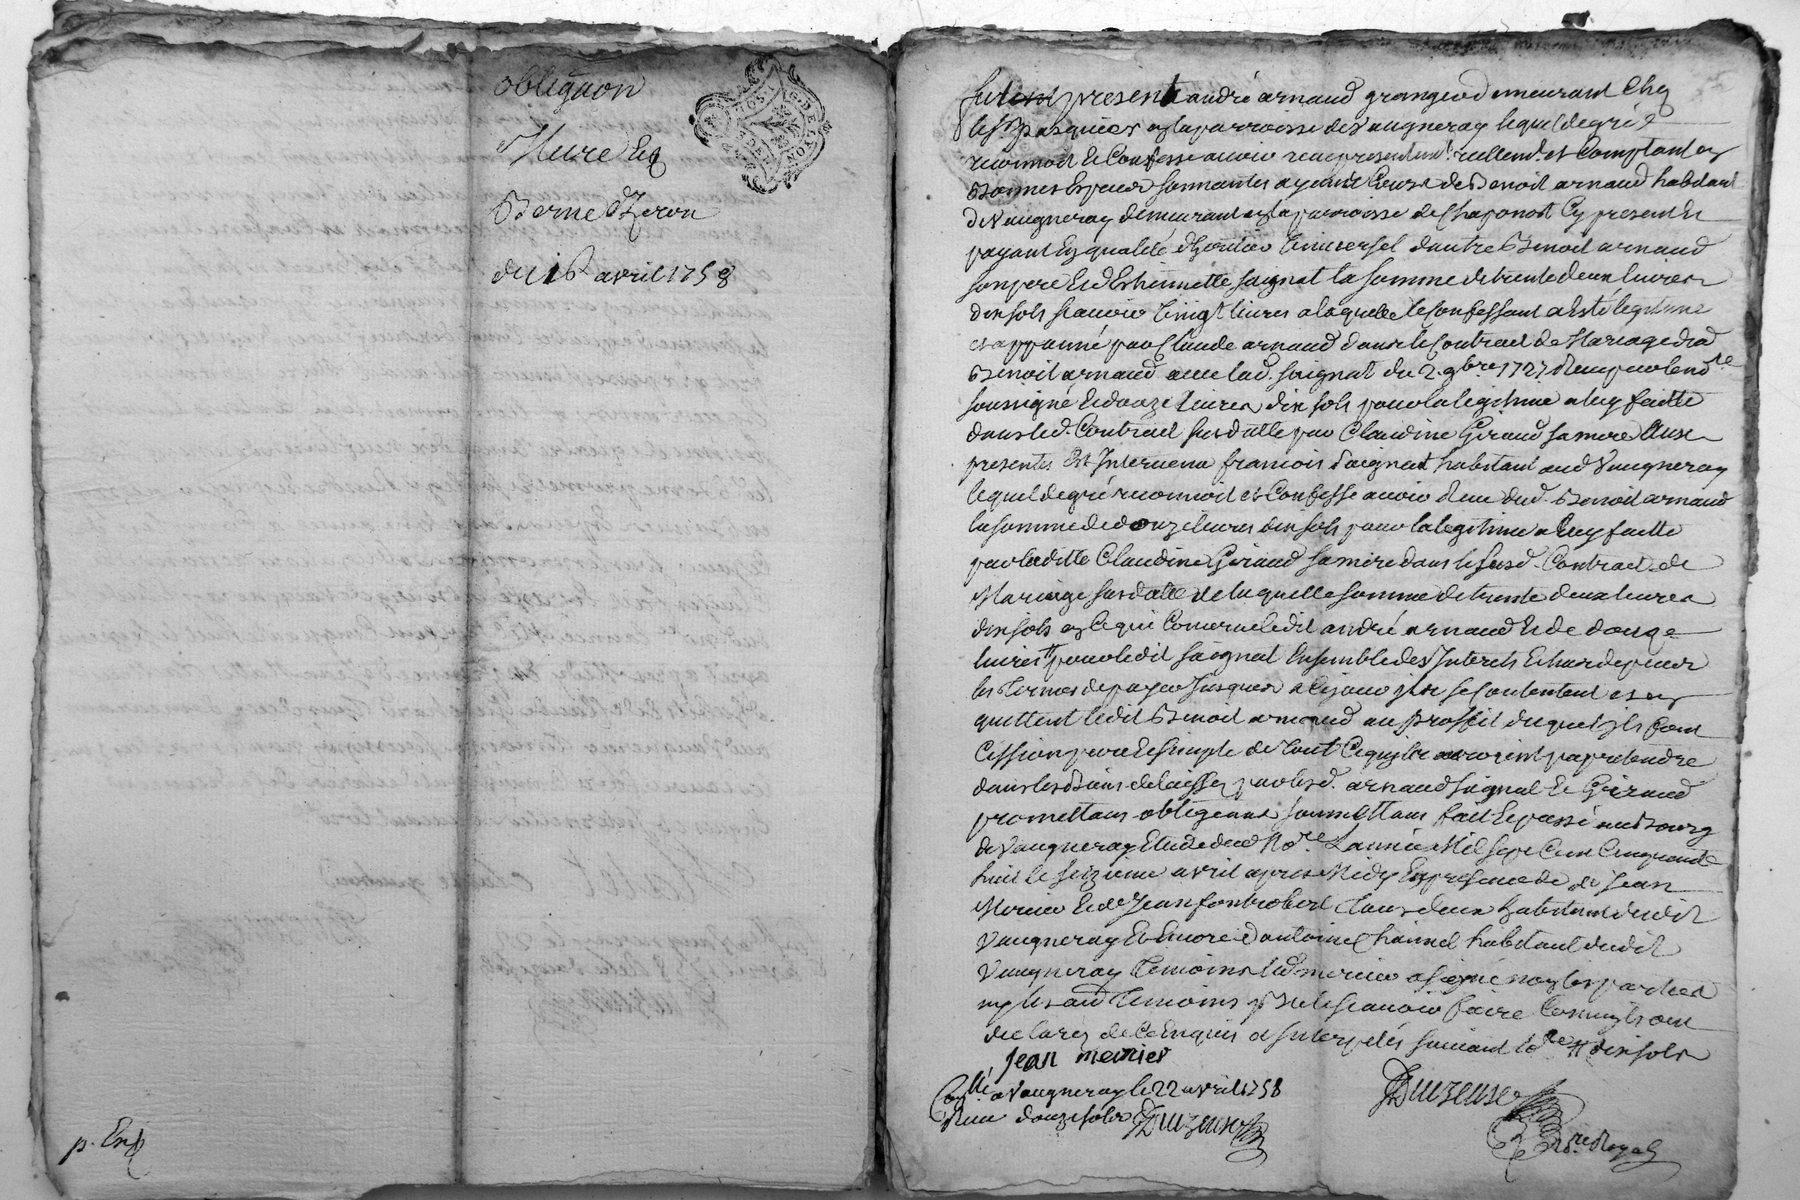 obligaon
Berne Zeron
du 16 avril 1758
G. DE LYON
p. Exp
furent present andré arnaud granger demeurant Chez
le Sr pasquier en la parroisse de Vaugneray lequel degré
reconnoit et Confesse avoir receu presentemt. reellemt. et Comptant en
Bonnes Especes sonnantes ayant Cours de Benoit arnaud habitant
de Vaugneray demeurant en la parroisse de Chaponost Cy present et
payant En qualité d'heritier universel d'autre Benoit arnaud
son pere et d'Ethiennette saignat la somme de trente deux livres
dix sols scavoir vingt livres a laquelle le Confessant a Esté legitime
et appanné par Claude arnaud dans le Contract de Mariage du
Benoit arnaud avec lad. saignat du 2. 9bre 1727 Receu par le nore
soussigné et douze livres dix sols pour la legitime a luy faitte
dans led. Contract susdatté par Claudine Giraud sa mere aux
presentes Est Intervenu francois saignat habitant aud Vaugneray
lequel degré reconnoit et Confesse avoir Receu dud. Benoit arnaud
la somme de douze livres dix sols pour la legitime a luy faitte
par laditte Claudine Giraud sa mere dans le susd. Contract de
Mariage susdatté de laquelle somme de trente deux livres
dix sols en ce qui Concerne ledit andré arnaud et de douze
livres pour ledit saignat Ensemble des Interets Echus depuis
les termes de payer Jusques a ce jour ils se Contentent et en
quittent ledit Benoit arnaud au proffit duquel ils font
Cession pure et simple de tout Ce qu'ils auroient pu pretendre
dans les Biens delaissez par lesd. arnaud saignat et Giraud
promettans obligeans soumettans fait et passé au Bourg
de Vaugneray Etude dud Nore. L'année Mil sept Cens Cinquante
huit le seizieme avril apres Midy En presence de sr Jean
Mercier et de Jean fontrobert tous deux habitant dudit
Vaugneray et Encore d'antoine habitant dudit
Vaugneray temoins led mercier a signé non les parties
ny les autres temoins p. ne le scavoir faire Comm'ils ont
declaré de Ce Enquis et Interpellés suivant dix sols
jean mercier
Collé a Vaugneray le 22 avril 1758
Receu douze sols
Nore Royal